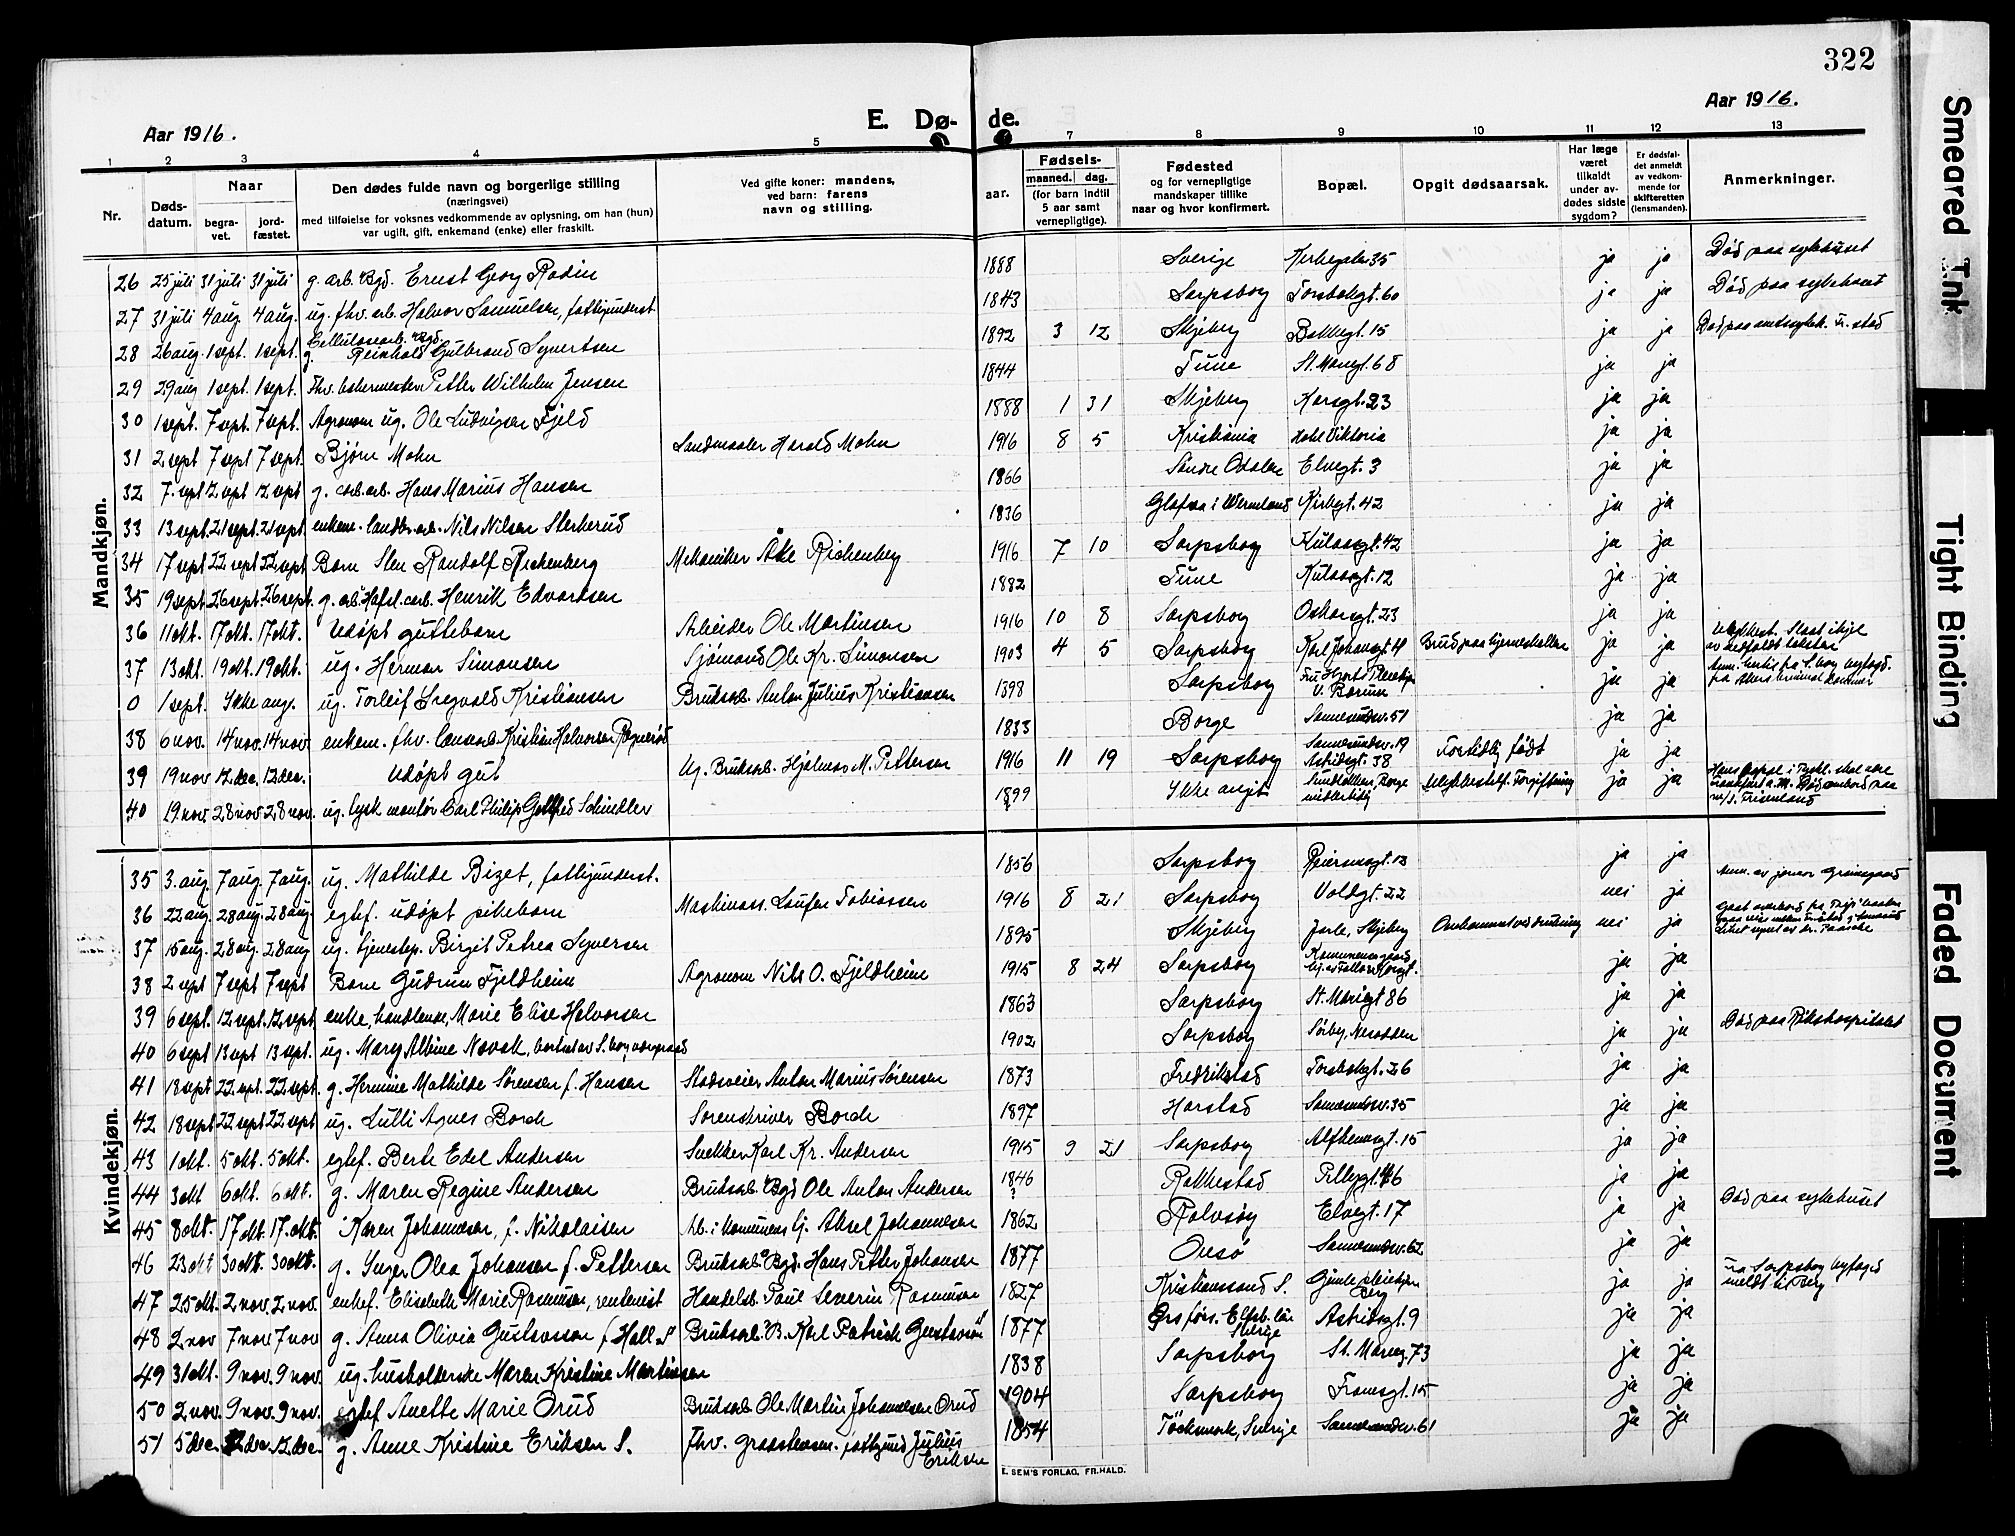 322
Aar 1916.
E. Dø- de.
Aar 1916.
1 2 3 4 5 7 8 9 10 11 12 13
Nr.
Døds-
datum.
Naar
begra-
vet.
jord-
fæstet.
Den dødes fulde navn og borgerlige stilling
(næringsvei)
med tilføielse for voksnes vedkommende av oplysning, om han (hun)
var ugift, gift, enkemand (enke) eller fraskilt.
Ved gifte koner: mandens,
ved barn: farens
navn og stilling.
aar.
Fødsels-
maaned. dag.
(for barn indtil
5 aar samt
vernepligtige).
Fødested
og for vernepligtige
mandskaper tillike
naar og hvor konfirmert.
Bopæl.
Opgit dødsaarsak.
Har læge
været
tilkaldt
under av-
dødes sidste
sygdom?
Er dødsfal-
det anmeldt
av vedkom-
mende for
skifteretten
(lensmanden).
Anmerkninger.
Mandkjøn.
26 25 juli 31 juli 31 juli g. arb. Bgd. Ernst Georg Rodin 1888 Sverige Kirkegaten 35 ja ja Død paa sykehuset
27 31 juli 4 aug. 4 aug. ug. fhv. arb. Halvor Samuelsen, fattigunderst 1843 Sarpsborg Torsbekgt. 60 ja ja Død paa sykehuset
28 26 aug. 1 sept. 1 sept. Cellulosearb. Bgd. g. Reinhold Gulbrand Syvertsen 1892 3 12 Skjeberg Bakkegt. 15 ja ja Død paa amtssykeh. Fr.stad
29 29 aug 1 sept. 1 sept. Fhv. Petter Wilhelm Jensen 1844 Tune St. Mariegt. 68 ja ja
30 1 sept. 7 sept. 7 sept. Agronom ug. Ole Ludvigsen Fjeld 1888 1 31 Skjeberg Korsgt. 23 ja ja
31 2 sept 7 sept 7 sept. Bjørn Mohn Landmaaler Harald Mohn 1916 8 5 Kristiania Hotel Viktoria ja ja
32 7. sept 12 sept 12 sept g. carb. arb. Hans Marius Hansen 1866 Søndre Odalen Elvegt. 3 ja ja
33 13 sept. 21 sept. 21 sept. enkem. landbr. arb. Nils Nilsen Sterkerud 1836 Glafva i Wermland Kirkegt. 42 ja ja
34 17 sept 22 sept 22 sept Barn Sten Randolf Richenberg Mekaniker Åke Richenberg 1916 7 10 Sarpsborg Kulaasgt. 42 ja ja
35 19 sept. 26 sept. 26 sept. g. arb. Hafsl. carb. Henrik Edvardsen 1882 Tune Kulaasgt. 12 ja ja
36 11 okt. 17 okt. 17 okt. Udøpt guttebarn Arbeider Ole Martinsen 1916 10 8 Sarpsborg Oskarsgt. 23 ja ja
37 13 okt 19 okt. 19 okt. ug. Herman Simonsen Sjømand Ole Kr. Simonsen 1903 4 5 Sarpsborg Karl Johansgt Brud paa hjerneskallen ja ja Ulykkest. Slaat ihjel
0 1 sept. Ikke ang. ug. Torleif Sregvald Kristiansen Bruksarb. Anton Julius Kristiansen 1898 Sarpsborg V. Bærum ja ja
38 6 nov. 14 nov. 14 nov. enkem. fhv. Kristian Halvorsen 1833 Borge Sannesundsv. 51 ja ja
39 19 nov 12 dec. 12 dec. Udøpt gut Ug. Bruksarb. Hjalmar M. Pettersen 1916 11 19 Sarpsborg Sannesundsv. 19 Astridsgt. 38 Fortidlig født ja ja
40 19. nov 28 nov 28 nov. ug. tysk montør Carl Philip Gottfred Schindler 1899 Ikke angit midlertidig Ulykkestilf. Forgiftning ja ja
Kvindekjøn.
35 3. aug. 7 aug. 7 aug. ug. Mathilde Bizet, fattigunderst. 1856 Sarpsborg 13 ja ja
36 22 aug. 28 aug. 28 aug egtef. udøpt pikebarn Maskinass. Laufen Tobiassen 1916 8 21 Sarpsborg Voldgt. 22 nei ja
37 15 aug. 28 aug. 28 aug ug. tjenestep. Birgit Petrea Syversen 1895 Skjeberg Skjeberg Omkommet ved drukning nei ja
38 2 sept 7 sept 7 sept Barn Gudrun Fjeldheim Agronom Nils O. Fjeldheim 1915 8 24 Sarpsborg ja ja
39 6 sept. 12 sept. 12 sept enke, handlende, Marie Elise Halvorsen 1863 Sarpsborg St. Mariegt 86 ja ja
40 6 sept 13 sept 13 sept. ug. Mary Albine Novak, 1902 Sarpsborg Sørby, Nesodden ja ja Død paa Rikshospitalet
41 18 sept 22 sept. 22 sept g. Hermine Mathilde Sørensen f. Hansen Stadsveier Anton Marius Sørensen 1873 Fredrikstad Torsbekgt. 26 ja ja
42 18 sept 22 sept 22 sept ug. Lulli Agnes Borch Sorenskriver Borch 1897 Harstad Sannesundsv. 35 ja ja
43 1 okt. 5 okt. 5 okt. egtef. Berte Edel Andersen Snekker Karl Kr. Andersen 1915 9 21 Sarpsborg Alfheimsgt. 15 ja ja
44 3 okt 6 okt. 6 okt. g. Maren Regine Andersen Bruksarb. Bgd Ole Anton Andersen 1846 ? Rakkestad ja ja
45 8 okt. 17 okt. 17. okt. Karen Johannesen, f. Nikolaisen Arb. i komunens tj. Aksel Johannesen 1862 Rolvsøy Elvegt. 17 ja ja Død paa sykehuset
46 23 okt 30 okt. 30 okt. g. Inger Olea Johansen f. Pettersen Bruksarb. Bgd. Hans Petter Johansen 1877 Onsø Sannesundsv. 62 ja ja
47 25 okt. 2 nov. 2 nov. enkef. Elisabeth Marie Rasmussen, rentenist Handelsb. Paul Severin Rasmussen 1827 Kristianssand S. Berg ja ja Fra Sarpsborg bytogd meldt til Berg
48 2 nov 7 nov 7 nov g. Anna Olivia Gustavsson f. Hall S Bruksarb. B. Karl Patrick Gustavson 1877 Ørs førs. Elfsb. län Sverige Astridsgt. 9 ja ja
49 31 okt. 9 nov. 9 nov. ug. husholderske Maren Kristine Martinsen 1838 Sarpsborg St. Marieg. 73 ja ja
50 2 nov. 9 nov. 9 nov. egtef Anette Marie Orud Bruksarb. Ole Martin Johannesen Orud 1904 Sarpsborg Framsgt. 15 ja ja
51 5 dec. 12 dec. 12 dec. g. Anne Kristine Eriksen S. Fhv. graastensm. Julius Eriksen 1854 Töcksmark, Sverige Sannesundsv. 61 ja ja
E. SEM'S FORLAG, FR.HALD.
Smeared Ink
Tight Binding
Faded Document